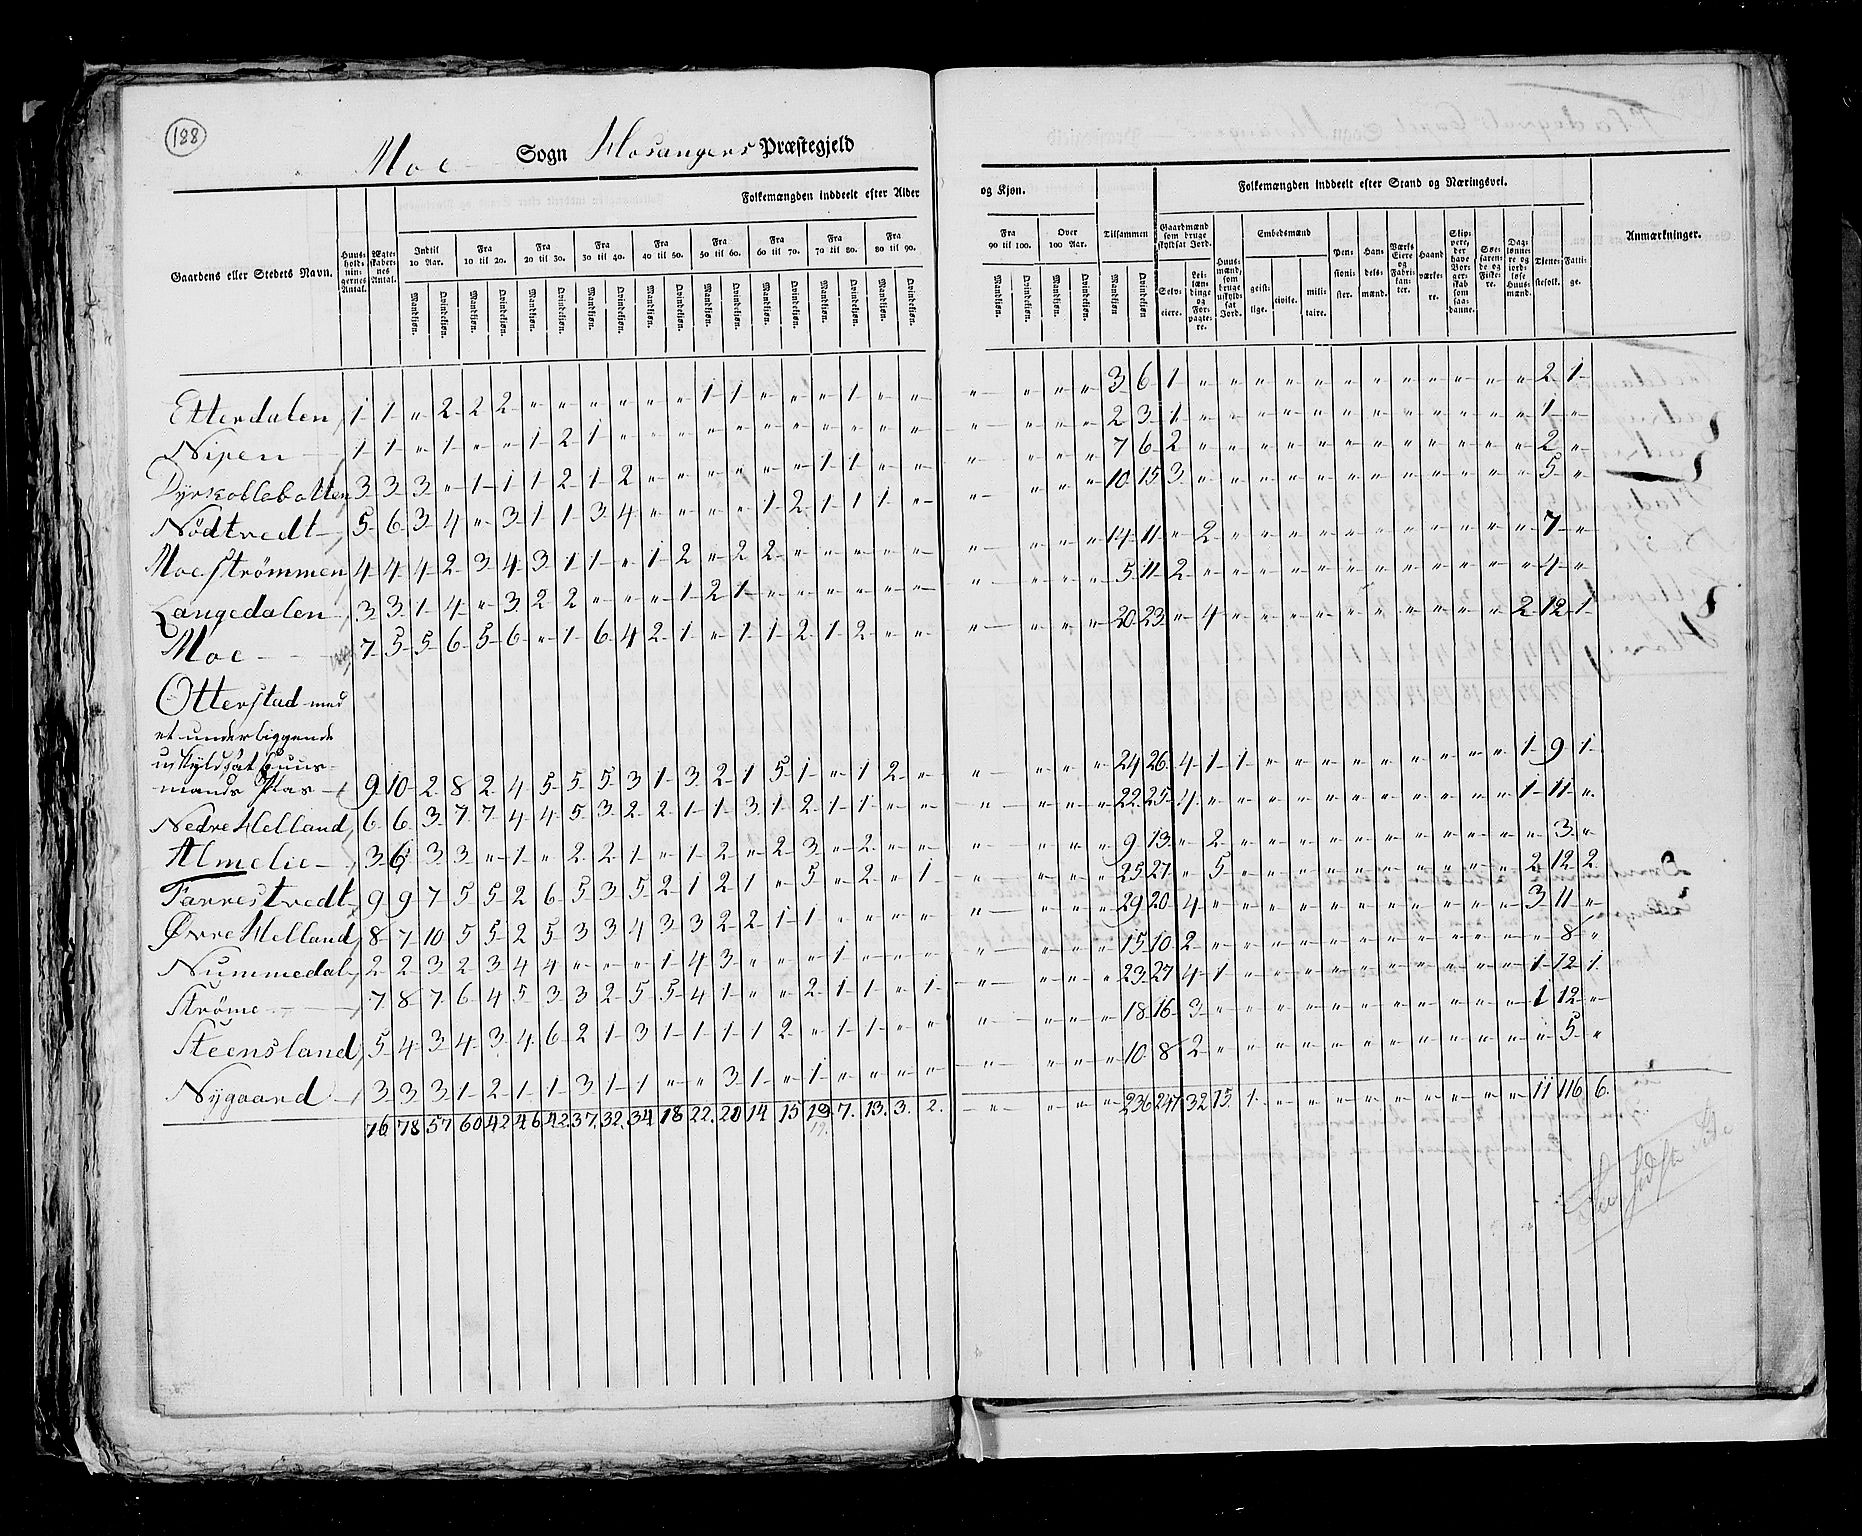 188
Moe Sogn Hosangers Præstegjeld
Folkemængden inddeelt efter Alder og Kjøn.
Folkemængden inddeelt efter Stand og Næringsvei.
Gaardens eller Stedets Navn.
Huus-holdnin-gernes Antal.
Ægte-skaber-nes Antal.
Indtil 10 Aar.
Fra 10 til 20.
Fra 20 til 30.
Fra 30 til 40.
Fra 40 til 50.
Fra 50 til 60.
Fra 60 til 70.
Fra 70 til 80.
Fra 80 til 90.
Fra 90 til 100.
Over 100 Aar.
Tilsammen
Mandkjøn. Qvindekjøn.
Gaardmænd som bruge skyldsat Jord.
Selv-eiere.
Lei-læn-dinge og For-pagte-re.
Huus-mænd, som bruge uskyld-sat Jord.
Embedsmænd
geist-lige.
civile.
mili-taire.
Pen-sioni-ster.
Han-dels-mænd.
Værks Eiere og Fabri-kan-ter.
Haand værke-re.
Skip-pere, der have Bor-ger-skab som saa-danne.
Søe-faren-de og Fiske-re.
Dag-lønne-re og jord-løse Huus-mænd.
Tjene-stefolk.
Fatti-ge.
Anmærkninger.
Etterdalen 1 1 " 2 2 2 " " " " " " 1 1 " " " 1 " " " " " " 3 6 1 " " " " " " " " " " " " 2 1
Nipen 1 1 " 1 " " 1 2 1 " " " " " " " " " " " " " " " 2 3 1 " " " " " " " " " " " " 1 "
Dyrkollebotten 3 3 3 " 1 1 1 2 1 2 " " " " " " 1 1 " " " " " " 7 6 2 " " " " " " " " " " " " 2 "
Nödtvedt 5 6 3 4 " 3 1 1 3 4 " " " " 1 2 1 1 1 " " " " " 10 15 3 " " " " " " " " " " " " 5 "
Moestrømmen 4 4 4 2 3 4 3 1 1 " 1 2 " 2 2 " " " " " " " " " 14 11 " 2 " " " " " " " " " " " 7 "
Langedalen 3 3 1 4 " 3 2 2 " " " 1 2 1 " " " " " " " " " " 5 11 2 " " " " " " " " " " " " 4 "
Moe 7 5 5 6 5 6 " 1 6 4 2 1 " 1 1 2 1 2 " " " " " " 20 23 " 4 " " " " " " " " " " 2 12 1
Otterstad med
et underliggende
uskyldsat huus-
mands Plas 9 10 2 8 2 4 5 5 5 3 1 3 2 1 5 1 " 1 2 " " " " " 24 26 4 1 1 " " " " " " " " " 1 9 1
Nedre Helland 6 6 3 7 7 4 4 5 3 2 2 1 1 3 1 2 1 1 " " " " " " 22 25 4 " " " " " " " " " " " 1 11 "
Almelie 3 6 3 3 " 1 " 2 2 1 " 1 2 " 2 3 " 2 " " " " " " 9 13 " 2 " " " " " " " " " " " 3 "
Farrestvedt 9 9 7 5 5 2 6 5 3 5 2 1 2 1 " 5 " 2 " 1 " " " " 25 27 " 5 " " " " " " " " " " 2 12 2
Øvre Helland 8 7 10 5 5 2 5 3 3 4 3 3 2 2 1 1 " " " " " " " " 29 20 4 " " " " " " " " " " " 3 11 "
Nummedal 2 2 3 2 3 4 4 " " " 1 4 3 " " " 1 " " " " " " " 15 10 2 " " " " " " " " " " " " 8 "
Strøme 7 8 7 6 4 5 3 3 2 5 5 4 1 " " 2 1 1 " 1 " " " " 23 27 4 1 " " " " " " " " " " 1 12 1
Steensland 5 4 3 4 3 4 6 2 1 3 1 1 1 1 2 " 1 1 " " " " " " 18 16 3 " " " " " " " " " " " 1 12 "
Nygaard 3 3 3 1 2 1 1 3 1 1 " " 3 1 " 1 " " " " " " " " 10 8 2 " " " " " " " " " " " " 5 "
76 78 57 60 42 46 42 37 32 34 18 22 20 14 15 19 7 13 3 2 " " " " 236 247 32 15 1 " " " " " " " " " 11 116 6
19.